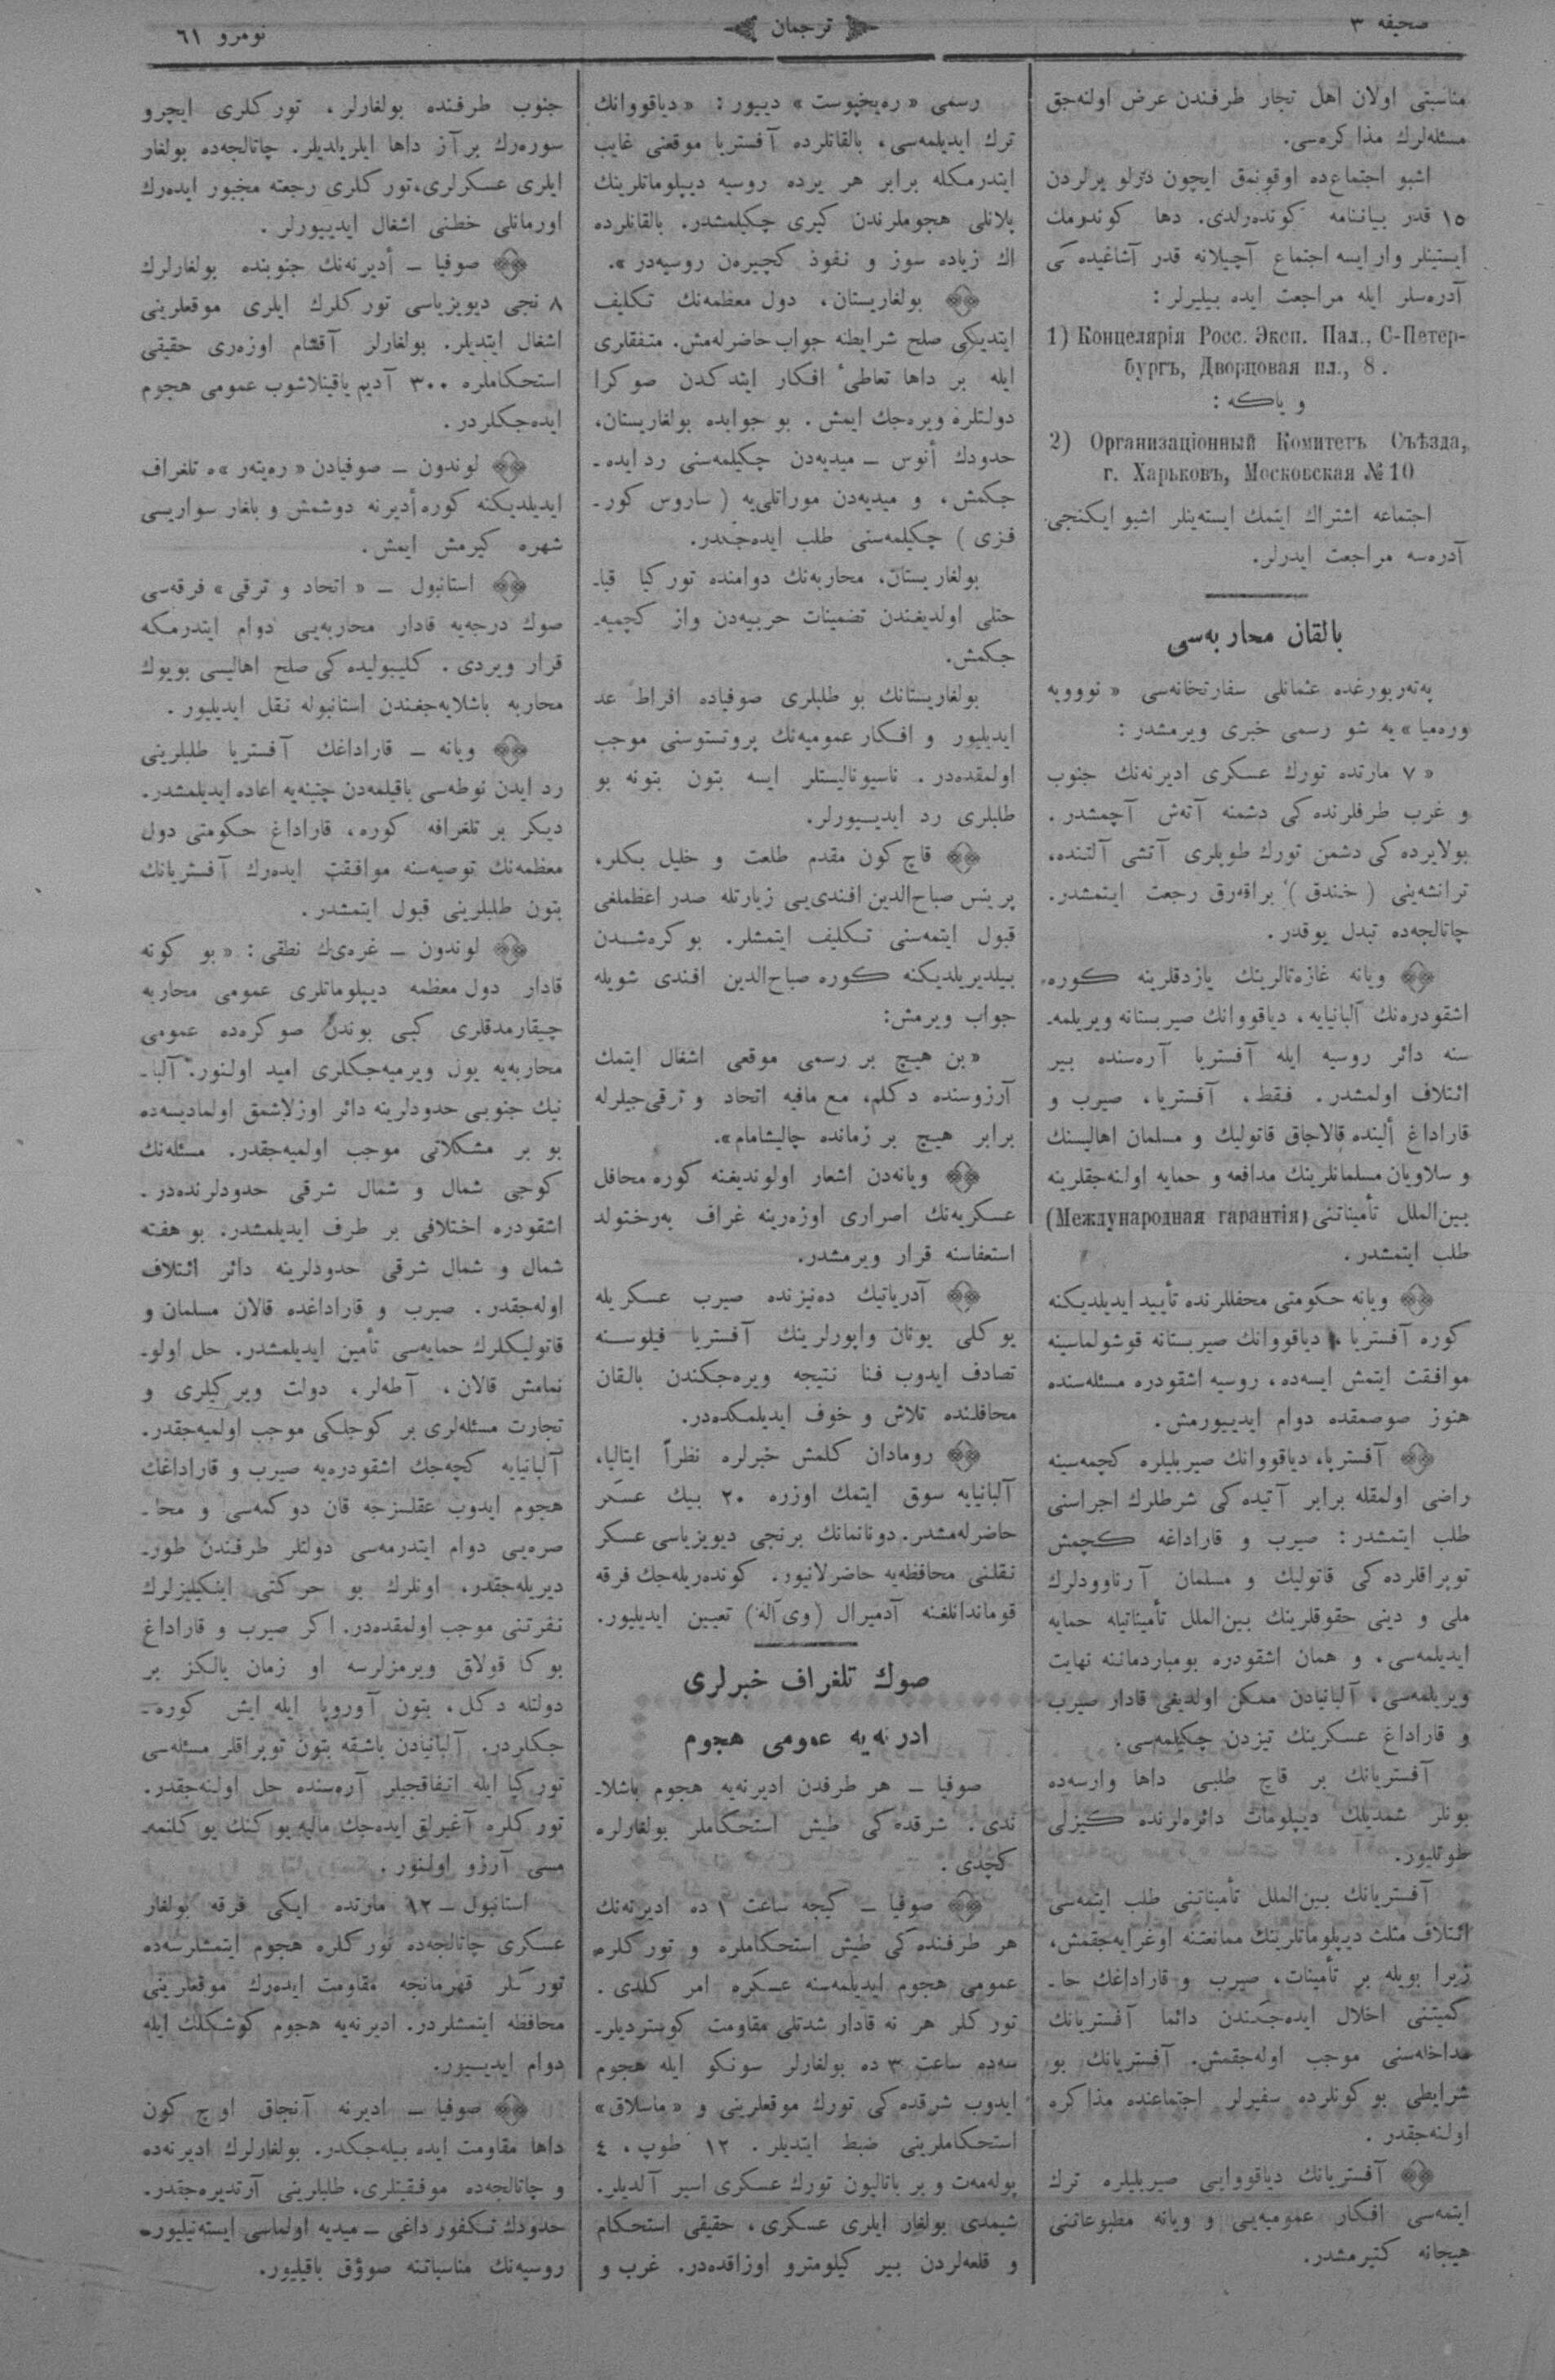 صحيفه ٣
ترجمان
نومرو ٦١
مناسبتى اولان اهل تجار طرفندن عرض اولنه‌جق
مسئله‌لرك مذاكره‌سى.
اشبو اجتماع‌ده اوقونمق ايچون دزلو يرلردن
١٥ قدر بياننامه كونده‌رلدى. دها كوندرمك
ايستينلر وار ايسه اجتماع آچيلانه قدر آشاغيده كى
آدره‌سلر ايله مراجعت ايده بيليرلر :
1) Концелярія Росс. Эксп. Пал., С-Петер-
бургъ, Дворцовая пл., 8.
و ياكه :
2) Организаціонный Комитетъ Съѣзда,
г. Харьковъ, Московская №10
اجتماعه اشتراك ايتمك ايسته‌ينلر اشبو ايكنجى
آدره‌سه مراجعت ايدرلر.
بالقان محاربه‌سى
په‌ته‌ربورغده عثمانلى سفارتخانه‌سى «نوويه
وره‌ميا» يه شو رسمى خبرى ويرمشدر :
«٧ مارتده تورك عسكرى ادرنه‌نك جنوب
و غرب طرفلرنده كى دشمنه آتش آچمشدر.
بولايرده كى دشمن تورك طوپلرى آتشى آلتنده،
ترانشه‌ينى (خندق) براقه‌رق رجعت ايتمشدر.
چاتالجه‌ده تبدل يوقدر.
ويانه غازه‌تالرينك يازدقلرينه كوره،
اشقودره‌نك آلبانيايه، دياقووانك صيربستانه ويريلمه‌ـ
سنه دائر روسيه ايله آفستريا آره‌سنده بير
ائتلاف اولمشدر. فقط، آفستريا، صيرب و
قاراداغ ألينده قالاجاق قاتوليك و مسلمان اهاليسنك
و سلاويان مسلمانلرينك مدافعه و حمايه اولنه‌جقلرينه
بين‌الملل تأميناتنى (Международная гарантія)
طلب ايتمشدر.
ويانه حكومتى محفللرنده تأييد ايديلديكنه
كوره آفستريا، دياقووانك صيربستانه قوشولماسينه
موافقت ايتمش ايسه‌ده، روسيه اشقودره مسئله‌سنده
هنوز صوصمقده دوام ايدييورمش.
آفستريا، دياقووانك صيربليلره كچمه‌سينه
راضى اولمقله برابر آتيده كى شرطلرك اجراسنى
طلب ايتمشدر : صيرب و قاراداغه كچمش
توپراقلرده كى قاتوليك و مسلمان آرناوودلرك
ملى و دينى حقوقلرينك بين‌الملل تأميناتيله حمايه
ايديلمه‌سى، و همان اشقودره بومبارد‌ماننه نهايت
ويريلمه‌سى، آلبانيادن ممكن اولديغى قادار صيرب
و قاراداغ عسكرينك تيزدن چكيلمه‌سى.
آفستريانك بر قاچ طلبى داها وارسه‌ده
بونلر شمديلك ديپلومات دائره‌لرنده كيزلى
طوتليور.
آفستريانك بين‌الملل تأميناتنى طلب ايتمه‌سى
ائتلاف مثلث ديپلوماتلرينك ممانعتنه اوغرايه‌جقمش،
زيرا بويله بر تأمينات، صيرب و قاراداغك حا‌ـ
كميتنى اخلال ايده‌جكندن دائما آفستريانك
مداخله‌سنى موجب اوله‌جقمش. آفستريانك بو
شرايطى بو كونلرده سفيرلر اجتماعنده مذاكره
اولنه‌جقدر.
آفستريانك دياقووايى صيربليلره ترك
ايتمه‌سى افكار عموميه‌يى و ويانه مطبوعاتنى
هيجانه كتيرمشدر.
رسمى «ره‌يخپوست» دييور : «دياقووانك
ترك ايديلمه‌سى، بالقانلرده آفستريا موقعنى غايب
ايتدرمكله برابر هر يرده روسيه ديپلوماتلرينك
پلانلى هجوملرندن كيرى چكيلمشدر. بالقانلرده
اك زياده سوز و نفوذ كچيره‌ن روسيه‌در».
بولغاريستان، دول معظمه‌نك تكليف
ايتديكى صلح شرايطنه جواب حاضرله‌مش. متفقلرى
ايله بر داها تعاطئ افكار ايتدكدن صوكرا
دولتلره ويره‌جك ايمش. بو جوابده بولغاريستان،
حدودك أنوس ــ ميديه‌دن چكيلمه‌سنى رد ايده‌ـ
جكمش، و ميديه‌دن موراتلى‌يه (ساروس كور‌ـ
فزى) چكيلمه‌سنى طلب ايده‌جكدر.
بولغاريستان، محاربه‌نك دوامنده توركيا قبا‌ـ
حتلى اولديغندن تضمينات حربيه‌دن واز كچميه‌ـ
جكمش.
بولغاريستانك بو طلبلرى صوفياده افراط عد
ايديليور و افكار عموميه‌نك پروتستوسنى موجب
اولمقده‌در. ناسيوناليستلر ايسه بتون بتونه بو
طلبلرى رد ايدييورلر.
قاچ كون مقدم طلعت و خليل بكلر،
پرينس صباح‌الدين افندى‌يى زيارتله صدر اعظملغى
قبول ايتمه‌سنى تكليف ايتمشلر. بو كره‌شدن
بيلديريلديكنه كوره صباح‌الدين افندى شويله
جواب ويرمش :
«بن هيچ بر رسمى موقعى اشغال ايتمك
آرزوسنده دكلم، مع مافيه اتحاد و ترقى‌جيلرله
برابر هيچ بر زمانده چاليشامام».
ويانه‌دن اشعار اولونديغنه كوره محافل
عسكريه‌نك اصرارى اوزه‌رينه غراف به‌رختولد
استعفاسنه قرار ويرمشدر.
آدرياتيك ده‌نيزنده صيرب عسكريله
يوكلى يونان واپورلرينك آفستريا فيلوسنه
تصادف ايدوب فنا نتيجه ويره‌جكندن بالقان
محافلنده تلاش و خوف ايديلمكده‌در.
رومادان كلمش خبرلره نظراً ايتاليا،
آلبانيايه سوق ايتمك اوزره ٢٠ بيك عسكر
حاضرله‌مشدر. دونانمانك برنجى ديويزياسى عسكر
نقلنى محافظه‌يه حاضرلانيور. كونده‌ريله‌جك فرقه
قوماندانلغنه آدميرال (وى آله) تعيين ايديليور.
صوك تلغراف خبرلرى
ادرنه‌يه عمومى هجوم
صوفيا ــ هر طرفدن ادرنه‌يه هجوم باشلا‌ـ
ندى. شرقده كى طيش استحكاملر بولغارلره
كچدى.
صوفيا ــ كيجه ساعت ١ ده ادرنه‌نك
هر طرفنده كى طيش استحكاملره و توركلره
عمومى هجوم ايديلمه‌سنه عسكره امر كلدى.
توركلر هر نه قادار شدتلى مقاومت كوسترديلر‌ـ
سه‌ده ساعت ٣ ده بولغارلر سونكو ايله هجوم
ايدوب شرقده كى تورك موقعلرينى و «ماسلاق»
استحكاملرينى ضبط ايتديلر. ١٢ طوپ، ٤
پوله‌مه‌ت و بر باتاليون تورك عسكرى اسير آلديلر.
شيمدى بولغار ايلرى عسكرى، حقيقى استحكام
و قلعه‌لردن بير كيلومترو اوزاقده‌در. غرب و
جنوب طرفنده بولغارلر، توركلرى ايچرو
سوره‌رك بر آز داها ايلريلديلر. چاتالجه‌ده بولغار
ايلرى عسكرلرى، توركلرى رجعته مجبور ايده‌رك
اورمانلى خطنى اشغال ايدييورلر.
صوفيا ــ أديرنه‌نك جنوبنده بولغارلرك
٨ نجى ديويزياسى توركلرك ايلرى موقعلرينى
اشغال ايتديلر. بولغارلر آقشام اوزه‌رى حقيقى
استحكاملره ٣٠٠ آديم ياقينلاشوب عمومى هجوم
ايده‌جكلردر.
لوندون ــ صوفيادن «ره‌يته‌ر» ه تلغراف
ايديلديكنه كوره أديرنه دوشمش و بلغار سواريسى
شهره كيرمش ايمش.
استانبول ــ «اتحاد و ترقى» فرقه‌سى
صوك درجه‌يه قادار محاربه‌يى دوام ايتدرمكه
قرار ويردى. كليبوليده كى صلح اهاليسى بويوك
محاربه باشلايه‌جغندن استانبوله نقل ايديليور.
ويانه ــ قاراداغك آفستريا طلبلرينى
رد ايدن نوطه‌سى باقيلمه‌دن چتينه‌يه اعاده ايديلمشدر.
ديكر بر تلغرافه كوره، قاراداغ حكومتى دول
معظمه‌نك توصيه‌سنه موافقت ايده‌رك آفستريانك
بتون طلبلرينى قبول ايتمشدر.
لوندون ــ غره‌ى‌ك نطقى : «بو كونه
قادار دول معظمه ديپلوماتلرى عمومى محاربه
چيقارمدقلرى كبى بوندن صوكره‌ده عمومى
محاربه‌يه يول ويرميه‌جكلرى اميد اولنور. آلبا‌ـ
نيك جنوبى حدودلرينه دائر اوزلاشمق اولماديسه‌ده
بو بر مشكلاتى موجب اولميه‌جقدر. مسئله‌نك
كوجى شمال و شمال شرقى حدودلرنده‌در.
اشقودره اختلافى بر طرف ايديلمشدر. بو هفته
شمال و شمال شرقى حدودلرينه دائر ائتلاف
اوله‌جقدر. صيرب و قاراداغده قالان مسلمان و
قاتوليكلرك حمايه‌سى تأمين ايديلمشدر. حل اولو‌ـ
نمامش قالان، آطه‌لر، دولت ويركيلرى و
تجارت مسئله‌لرى بر كوجلكى موجب اولميه‌جقدر.
آلبانيايه كچه‌جك اشقودره‌يه صيرب و قاراداغك
هجوم ايدوب عقلسزجه قان دوكمه‌سى و محا‌ـ
صره‌يى دوام ايتدرمه‌سى دولتلر طرفندن طور‌ـ
ديريله‌جقدر. اونلرك بو حركتى اينكليزلرك
نفرتنى موجب اولمقده‌در. اكر صيرب و قاراداغ
بوكا قولاق ويرمزلرسه او زمان يالكز بر
دولتله دكل، بتون آوروپا ايله ايش كوره‌ـ
جكلردر. آلبانيادن باشقه بتون توپراقلر مسئله‌سى
توركيا ايله اتفاقجيلر آره‌سنده حل اولنه‌جقدر.
توركلره آغيرلق ايده‌جك ماليه يوكنك يوكلنمه‌ـ
مسى آرزو اولنور.
استانبول ــ ١٢ مارتده ايكى فرقه بولغار
عسكرى چاتالجه‌ده توركلره هجوم ايتمشلرسه‌ده
توركلر قهرمانجه مقاومت ايده‌رك موقعلرينى
محافظه ايتمشلردر. اديرنه‌يه هجوم كوشكلك ايله
دوام ايدييور.
صوفيا ــ اديرنه آنجاق اوچ كون
داها مقاومت ايده بيله‌جكدر. بولغارلرك اديرنه‌ده
و چاتالجه‌ده موفقيتلرى، طلبلرينى آرتديره‌جقدر.
حدودك تكفور داغى ــ ميديه اولماسى ايسته‌نيليور.
روسيه‌نك مناسباتنه صوؤق باقيليور.